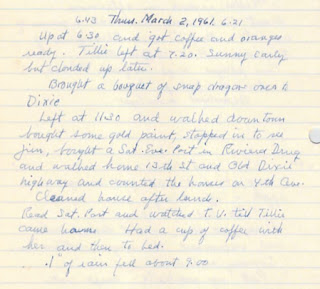 6:43 Thurs. March 2, 1961. 6:21
Up at 6:30 and got coffee and oranges
ready. Tillie left at 7:20. Sunny early
but clouded up later.
Brought a bouquet of snap dragons over to
Dixie
Left at 11:30 and walked downtown
bought some gold paint, stopped in to see
Jim, bought a Sat. Eve. Post in Riviera Drug
and walked home 13th St and Old Dixie
highway and counted the houses on 4th Ave.
Cleaned house after lunch.
Read Sat. Post and watched T.V. till Tillie
came home. Had a cup of coffee with
her and then to bed.
.1" of rain fell about 9:00